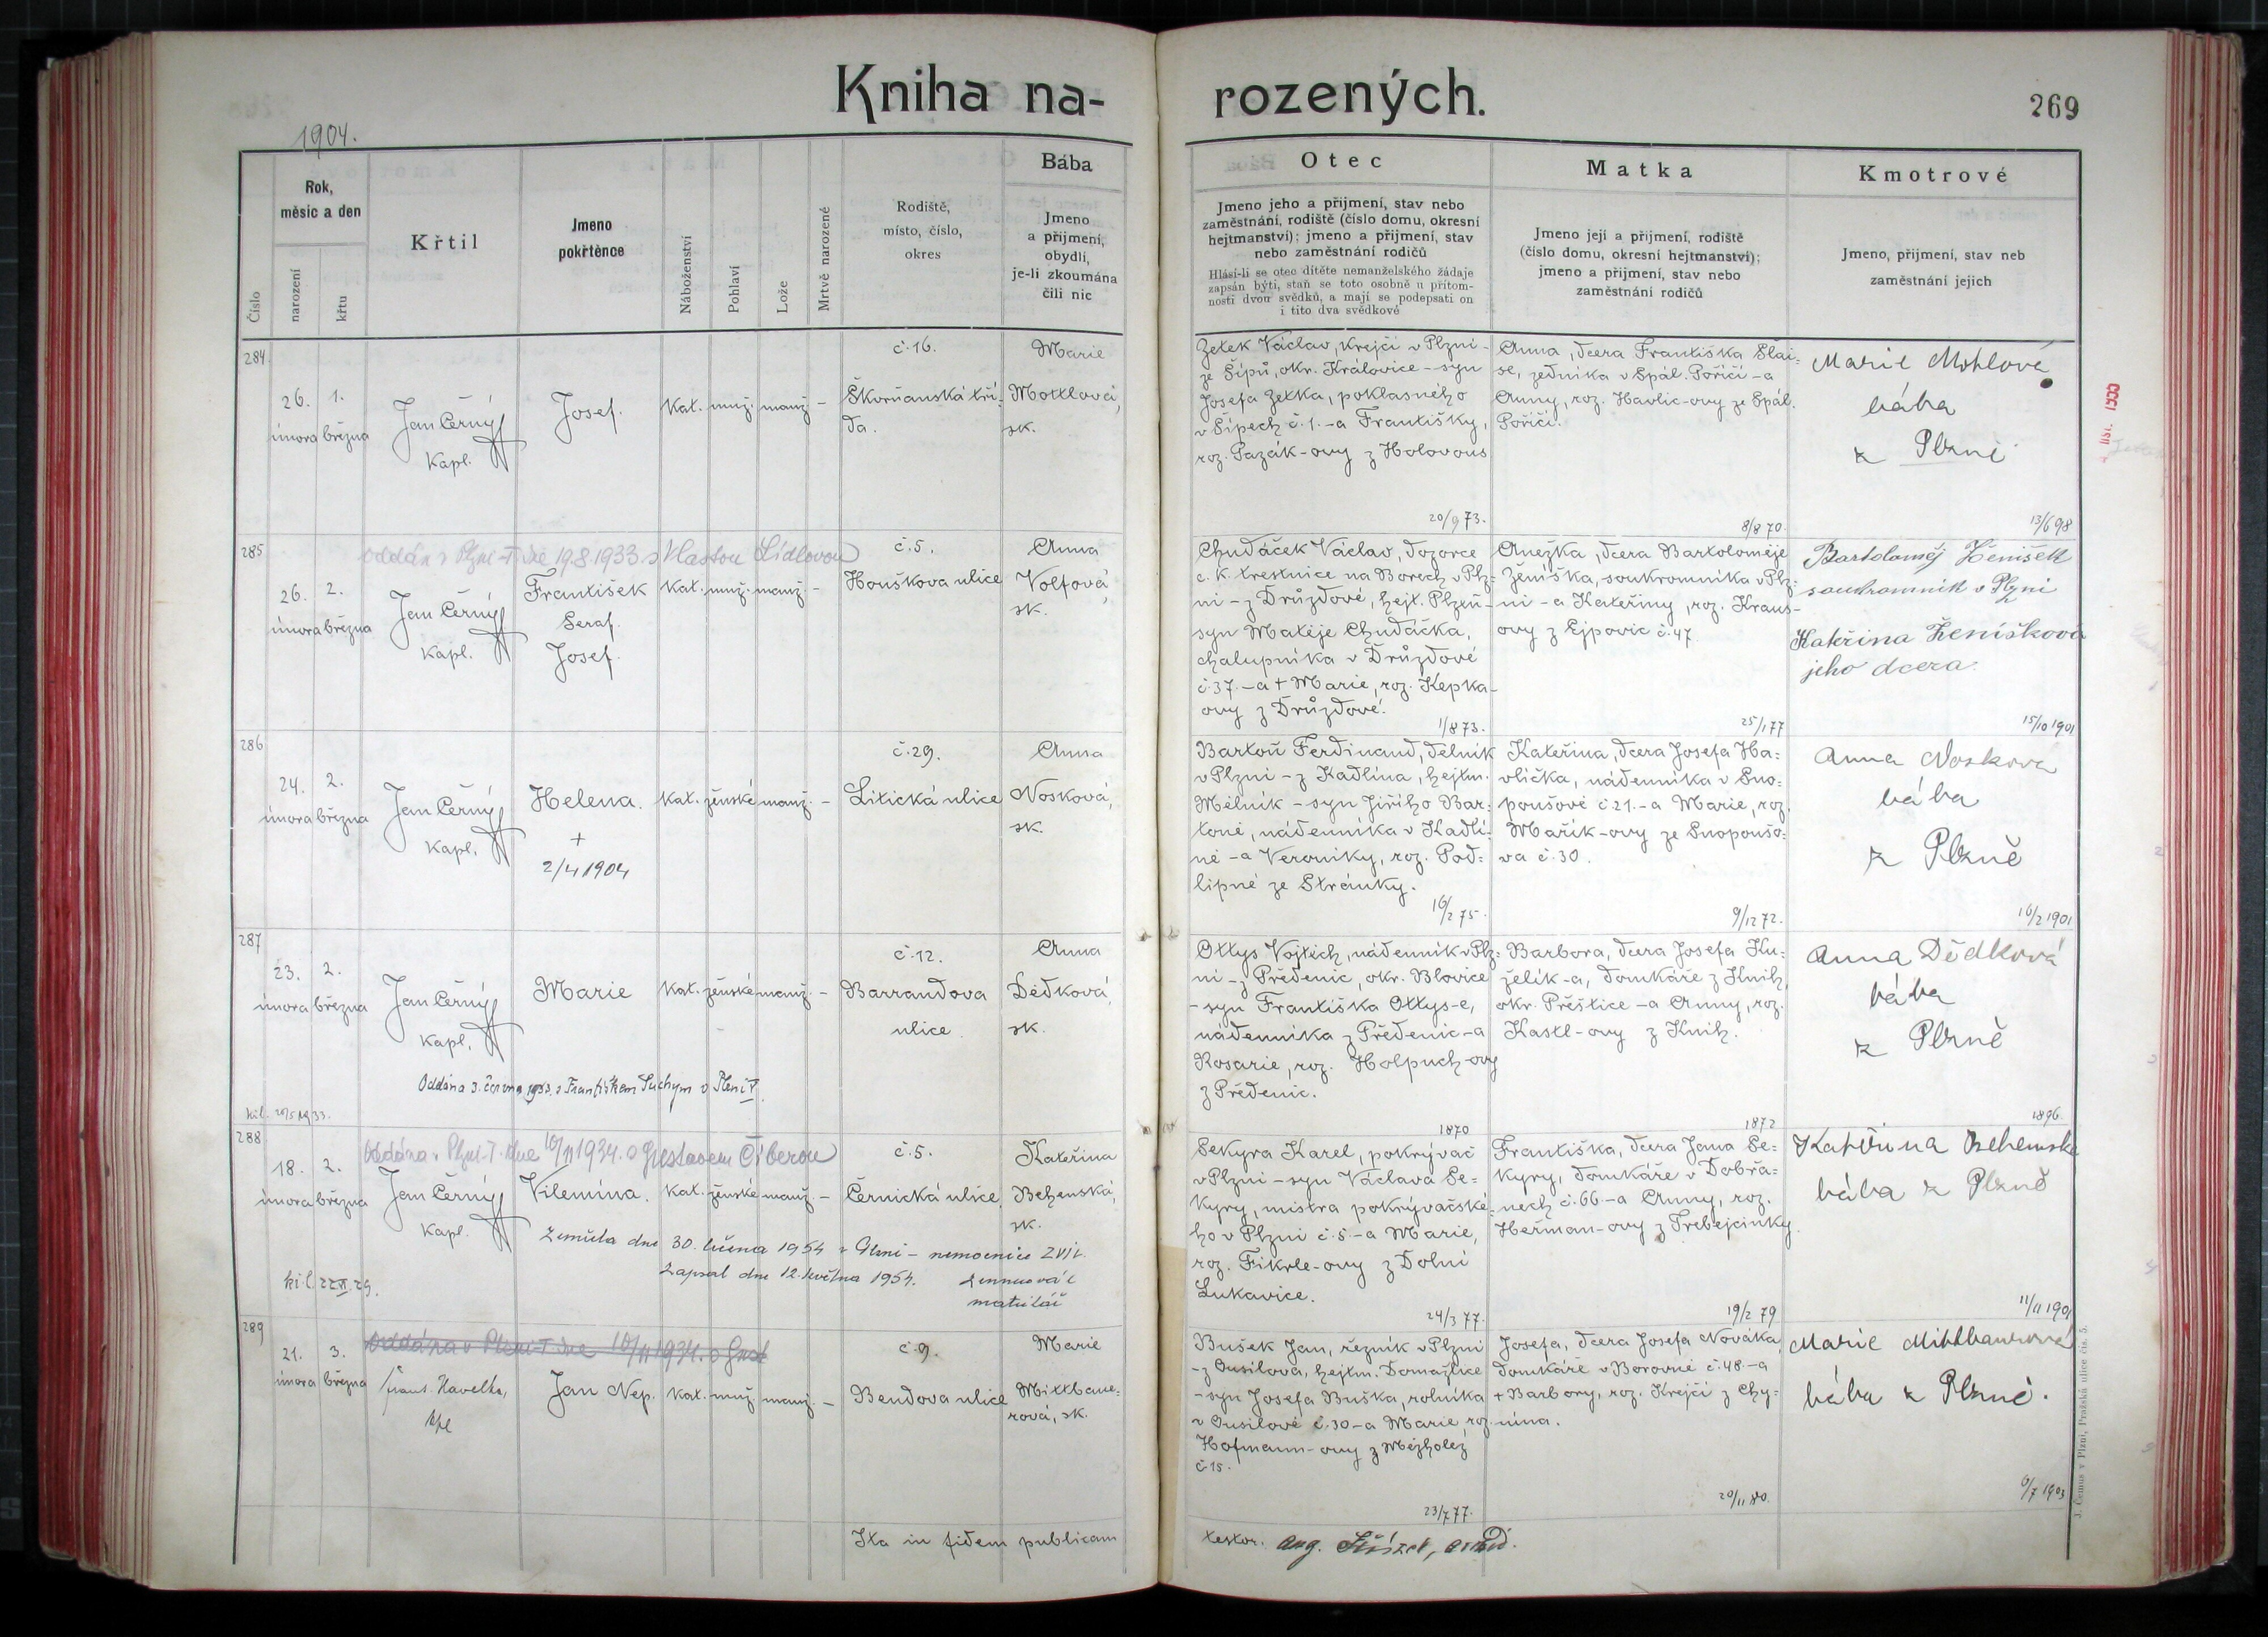 Kniha na-
rozených.
269
1904.
Číslo
Rok,
měsíc a den
narození
křtu
Křtil
Jmeno
pokřtěnce
Náboženství
Pohlaví
Lože
Mrtvě narozené
Rodiště,
místo, číslo,
okres
Bába
Jmeno
a přijmení,
obydlí,
je-li zkoumána
čili nic
Otec
Jmeno jeho a přijmení, stav nebo
zaměstnání, rodiště (číslo domu, okresní
hejtmanství); jmeno a přijmení, stav
nebo zaměstnání rodičů
Hlásí-li se otec dítěte nemanželského žádaje
zapsán býti, staň se toto osobně u přítom-
nosti dvou svědků, a mají se podepsati on
i tito dva svědkové
Matka
Jmeno její a přijmení, rodiště
(číslo domu, okresní hejtmanství);
jmeno a přijmení, stav nebo
zaměstnání rodičů
Kmotrové
Jmeno, přijmení, stav neb
zaměstnání jejich
284
26.
února
1.
března
Jan Černý
Kapl.
Josef.
Kat.
muž.
manž
-
č. 16.
Škvrňanská tří-
da.
Marie
Mottlová,
sk.
Zetek Václav, krejčí v Plzni -
ze Šípů, okr. Královice - syn
Josefa Zetka, poklasného
v Šípech č. 1. - a Františky,
roz. Pazák-ovy z Holovous
20/9 73.
Anna, dcera Františka Šlai-
se, zedníka v Spál. Poříčí - a
Anny, roz. Havlic-ovy ze Spál.
Poříčí.
8/8 70.
Marie Mohlová
bába
z Plzně
13/6 98
285
oddán v Plzni-I dne 19.8.1933 s Vlastou Lídlovou
26.
února
2.
března
Jan Černý
Kapl.
František
Seraf.
Josef.
Kat.
muž.
manž
-
č. 5.
Houškova ulice
Anna
Volfová,
sk.
Chudáček Václav, dozorce
c. k. trestnice na Borech v Plz-
ni - z Drůzdové, hejt. Plzeň -
syn Matěje Chudáčka,
chalupníka v Drůzdové
č. 37. - a + Marie, roz. Kepka-
ovy z Drůzdové.
1/8 73.
Anežka, dcera Bartoloměje
Ženíška, soukromníka v Plz-
ni - a Kateřiny, roz. Kraus-
ovy z Ejpovic č. 47.
25/1 77
Bartoloměj Ženíšek
soukromník v Plzni
Kateřina Ženíšková
jeho dcera.
15/10 1901
286
24.
února
2.
března
Jan Černý
Kapl.
Helena.
+
2/4 1904
Kat.
ženské
manž.
-
č. 29.
Litická ulice
Anna
Nosková,
sk.
Bartoň Ferdinand, dělník
v Plzni - z Kadlína, hejtm.
Mělník - syn Jiřího Bar-
toně, nádenníka v Kadlí-
ně - a Veroniky, roz. Pod-
lipné ze Stránky.
16/2 75.
Kateřina, dcera Josefa Ha-
vlíčka, nádenníka v Sno-
poušově č. 21. - a Marie, roz.
Mařík-ovy ze Snopoušo-
va č. 30.
9/12 72.
Anna Noskova
bába
z Plzně
16/2 1901
287
23.
února
2.
března
Jan Černý
Kapl.
Marie
Kat.
ženské
manž.
-
č. 12.
Barrandova
ulice
Anna
Dědková,
sk.
Oddána 3. června 1933. s Františkem Suchým v Plzni
Ottys Vojtěch, nádenník v Plz-
ni - z Předenic, okr. Blovice
- syn Františka Ottys-e,
nádenníka z Předenic - a
Rosarie, roz. Holpuch-ovy
z Předenic.
1870
Barbora, dcera Josefa Ku-
želík-a, domkáře z Knih,
okr. Přeštice - a Anny, roz.
Kastl-ovy z Knih.
1872
Anna Dědková
bába
z Plzně
1896.
288
Oddána v Plzni-I. dne 10/11 1934. s Gustavem Číberou
18.
února
2.
března
Jan Černý
Kapl.
Vilemína.
Kat.
ženské
manž.
-
č. 5.
Černická ulice.
Kateřina
Behenská,
sk.
Zapsal dne 12. května 1954.
matrikář
Sekyra Karel, pokrývač
v Plzni - syn Václava Se-
kyry, mistra pokrývačské-
ho v Plzni č. 5. - a Marie,
roz. Fikrle-ovy z Dolní
Lukavice.
24/3 77.
Františka, dcera Jana Se-
kyry, domkáře v Dobřa-
nech č. 66 - a Anny, roz.
Heřman-ovy z Třebejcinky.
19/2 79
Kateřina Behenska
bába z Plzně
11/11 1901
289
Oddána v Plzni-I dne 10/11 1934. s Gust
21.
února
3.
března
Frant. Havelka,
kpl
Jan Nep.
Kat.
muž.
manž.
-
č. 9.
Bendova ulice
Marie
Mittbaue-
rová, sk.
Bušek Jan, řezník v Plzni
- z Ousilova, hejtm. Domažlice
- syn Josefa Buška, rolníka
v Ousilově č. 30 - a Marie, roz.
Hofmann-ovy z Mězholez
č. 15.
23/7 77.
Josefa, dcera Josefa Nováka,
domkáře v Borovně č. 48. - a
+ Barbory, roz. Krejčí z Chy-
nína.
20/11 80.
Marie Mittlbaurová
bába z Plzně.
6/7 1903
Ita in fidem publicam
testor.
J. Čemus v Plzni, Pražská ulice čís. 5.